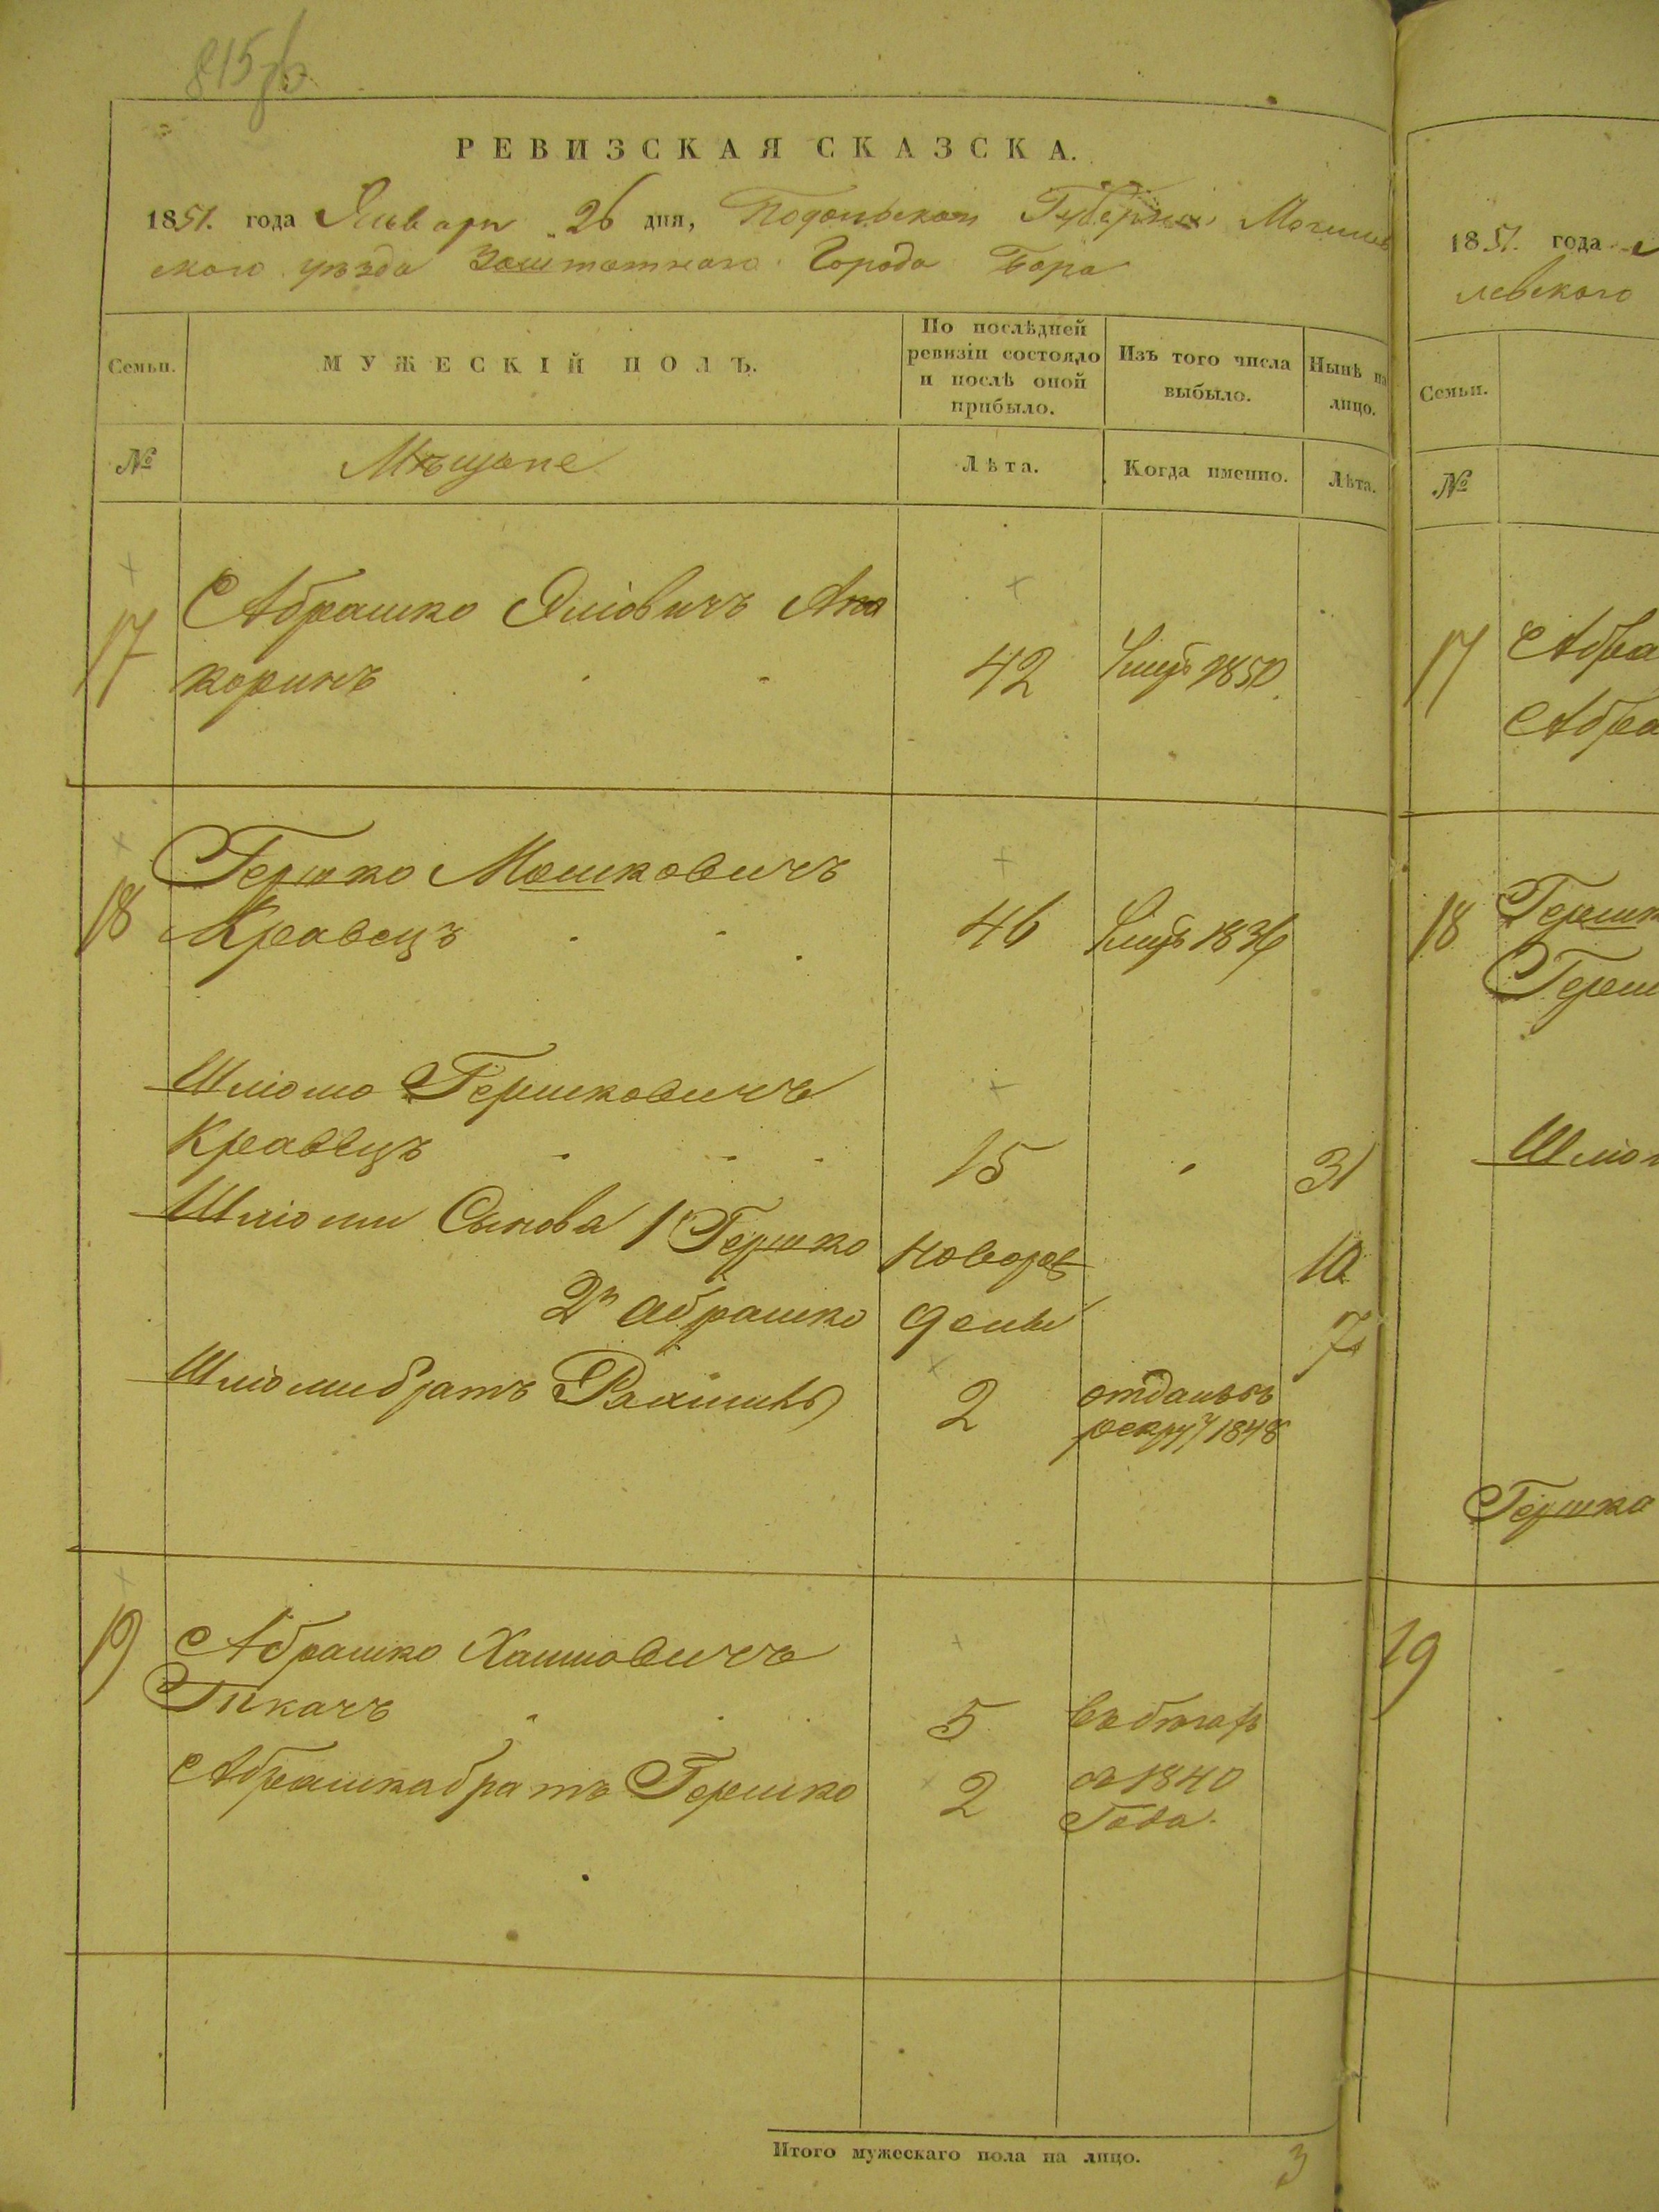 815
РЕВИЗСКАЯ СКАЗСКА.
1851. года Января 26 дня, Подольской Губернии Могилев
ского уезда Заштатнаго Города Бара
Семьи.
МУЖЕСКІЙ ПОЛЪ.
По послѣдней ревизіи состояло и послѣ оной прибыло.
Изъ того числа выбыло.
Нынѣ на лицо.
№
Мѣщане
Лѣта.
Когда именно.
Лѣта.
17 Абрашко
коринъ 42 1850
18 Гершко Мошковичъ
Кравецъ 46 1836
Шліомо Гершковичъ
Кравецъ 15 31
Шліоми Сынова 1 Гершко новорож 10
2й Абрашко дены 7
Шліоми братъ 2 отданъ въ
рекру 1848
19 Абрашко Хаимовичъ
Ткачъ 5
Абрашка братъ Гершко 2 съ 1840
Года.
Итого мужескаго пола на лицо. 3
1851. года
левского
Семьи.
№
17 Абра
Абра
18 Гершк
Герш
Шліом
Гершка
19